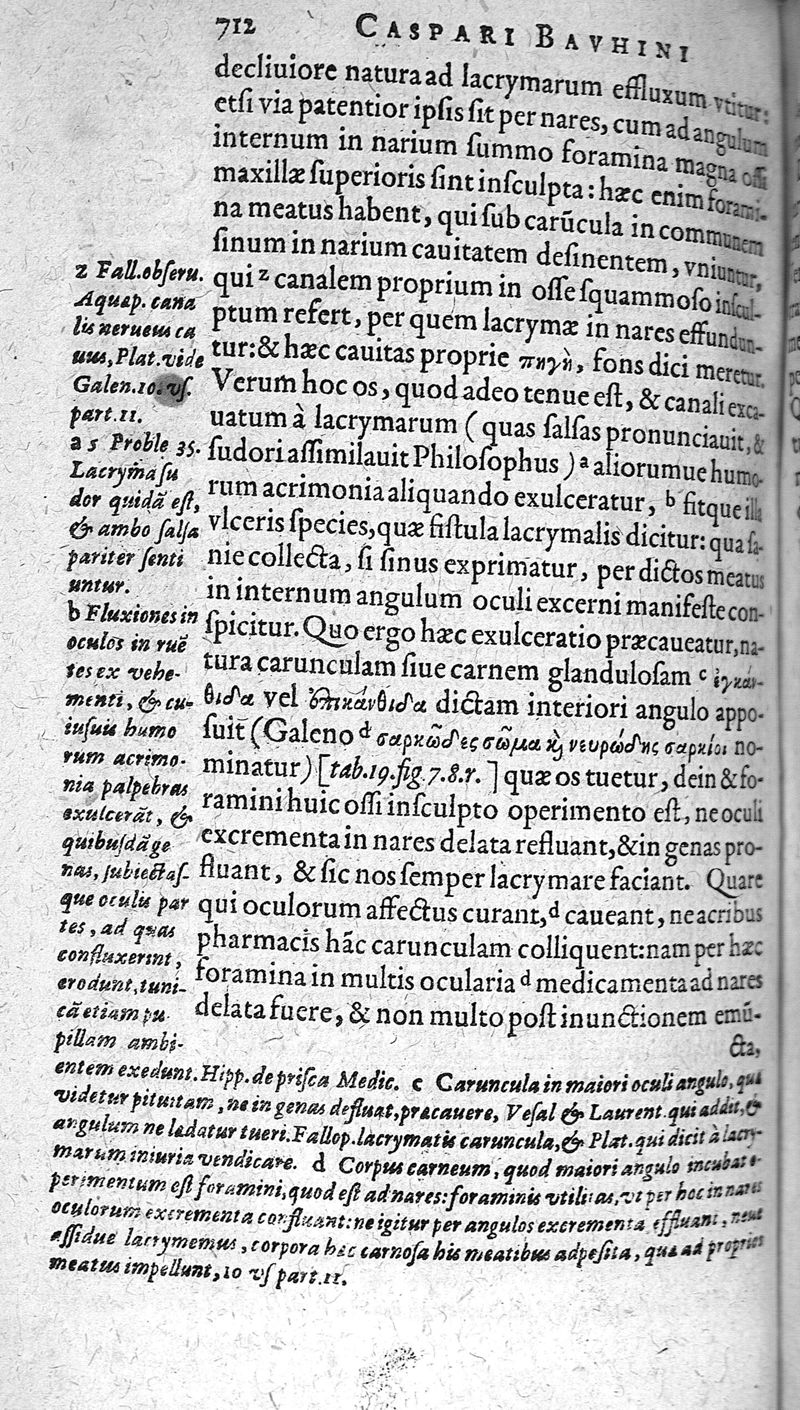 712 CASPARI BAVHINI
decliuiore natura ad lacrymarum effluxum vtitur:
etſi via patentior ipſis ſit per nares, cum ad angulum
internum in narium ſummo foramina magna oſſi
maxillæ ſuperioris ſint inſculpta: hæc enim forami-
na meatus habent, qui ſub carũcula in communem
ſinum in narium cauitatem deſinentem, vniuntur,
qui z canalem proprium in oſſe ſquammoſo inſcul-
ptum refert, per quem lacrymæ in nares effundun-
tur: & hæc cauitas proprie πηγὴ, fons dici meretur.
Verum hoc os, quod adeo tenue eſt, & canali exca-
uatum à lacrymarum (quas ſalſas pronunciauit, &
ſudori aſſimilauit Philoſophus) a aliorumue humo-
rum acrimonia aliquando exulceratur, b fitque illa
vlceris ſpecies, quæ fiſtula lacrymalis dicitur: qua ſa-
nie collecta, ſi ſinus exprimatur, per dictos meatus
in internum angulum oculi excerni manifeſte con-
ſpicitur. Quo ergo hæc exulceratio præcaueatur, na-
tura carunculam ſiue carnem glanduloſam c ἐγκαν-
θίδα vel ἐπικάνθιδα dictam interiori angulo appo-
ſuit (Galeno d σαρκῶδες σῶμα καὶ νευρώδης σαρκίοι no-
minatur) [tab. 19. fig. 7. 8. r. ] quæ os tuetur, dein & fo-
ramini huic oſſi inſculpto operimento eſt, ne oculi
excrementa in nares delata refluant, & in genas pro-
fluant, & ſic nos ſemper lacrymare faciant. Quare
qui oculorum affectus curant, d caueant, ne acribus
pharmacis hãc carunculam colliquent: nam per hæc
foramina in multis ocularia d medicamenta ad nares
delata fuere, & non multo poſt inunctionem emũ-
cta,
z Fall. obſeru.
Aquap. cana
lis nerueus ca
uus, Plat. vide
Galen. 10. vſ.
part. 11.
a 5 Proble 35.
Lacryma ſu
dor quidã eſt,
& ambo ſalſa
pariter ſenti
untur.
b Fluxiones in
oculos in ruẽ
tes ex vehe-
menti, & cu-
iuſuis humo
rum acrimo-
nia palpebras
exulcerãt, &
quibuſdã ge
nas, ſubiectaſ-
que oculis par
tes, ad quas
confluxerint,
erodunt, tuni-
cã etiam pu
pillam ambi-
entem exedunt. Hipp. de priſca Medic. c Caruncula in maiori oculi angulo, quæ
videtur pituitam, ne in genas defluat, præcauere, Veſal & Laurent. qui addit, &
angulum ne lædatur tueri. Fallop. lacrymatis caruncula, & Plat. qui dicit à lacry-
marum iniuria vendicare. d Corpus carneum, quod maiori angulo incubat o-
perimentum eſt foramini, quod eſt ad nares: foraminis vtilitas, vt per hoc in nares
oculorum excrementa confluant: ne igitur per angulos excrementa effluant, neue
aſſidue lacrymemus, corpora hæc carnoſa his meatibus adpoſita, quæ ad proprios
meatus impellunt, 10 vſ part. 11.